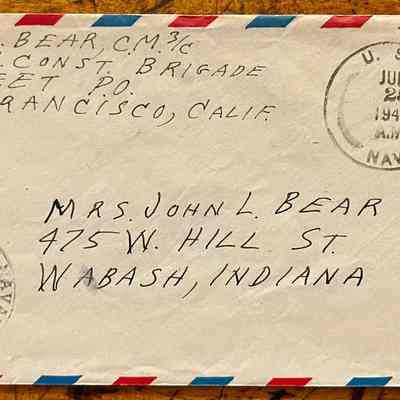 BEAR, C.M. 3/C
CONST. BRIGADE
EET P.O.
RANCISCO, CALIF.
U. S.
JU
2
194
A.M
NAV
MRS. JOHN L. BEAR
475 W. HILL ST.
WABASH, INDIANA
NAVA